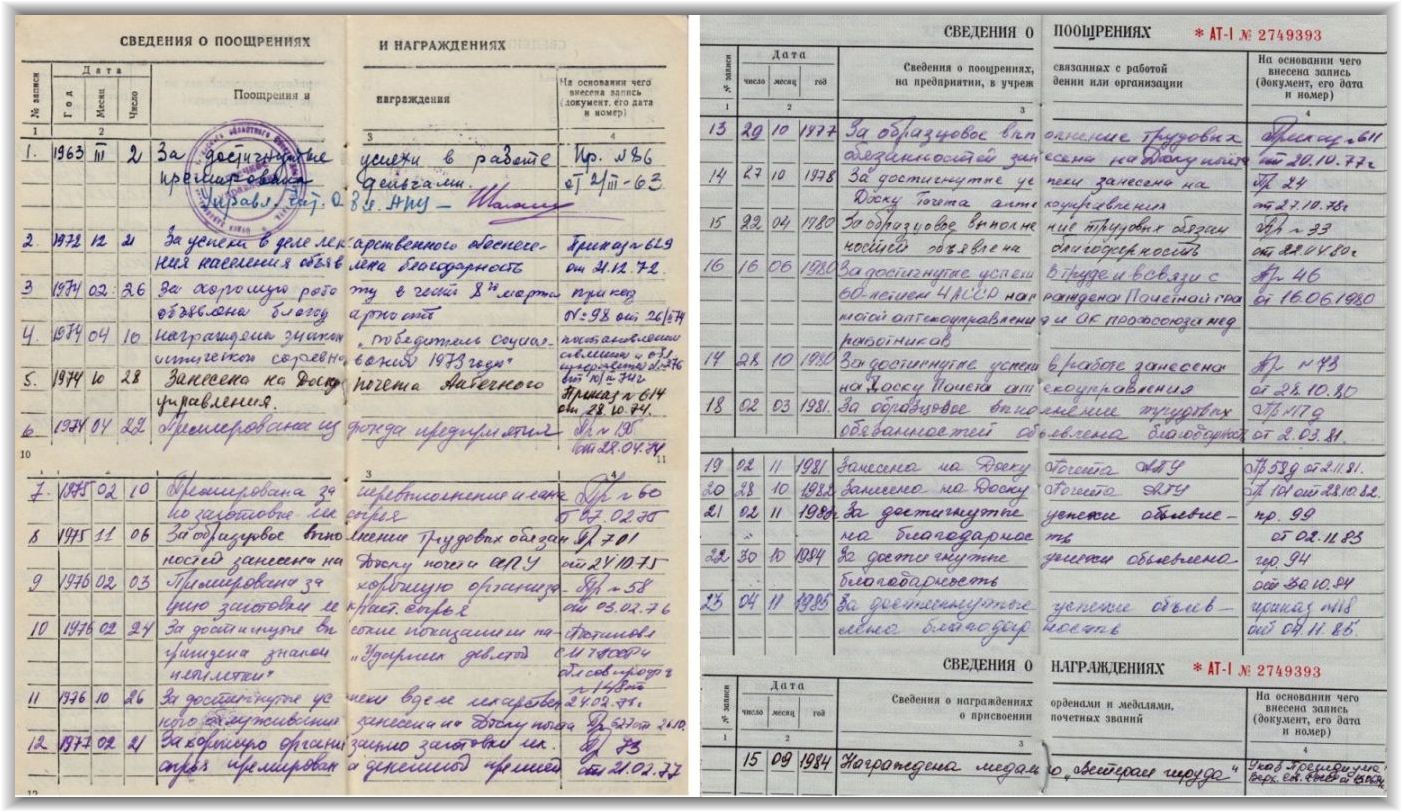 СВЕДЕНИЯ О ПООЩРЕНИЯХ И НАГРАЖДЕНИЯХ
№ записи Дата Поощрения и награждения На основании чего внесена запись (документ, его дата и номер)
Год Месяц Число
1 2 3 4
1. 1963 III 2 За достигнутые успехи в работе Пр. №86
премирована деньгами. от 2/III-63
Управл. АПУ —
2. 1972 12 21 За успехи в деле лекарственного обеспече- Приказ №629
ния населения объявлена благодарность от 21.12.72.
3 1974 02 26 За хорошую работу в честь 8го марта приказ
объявлена благодарность №98 от 26/II 74
4. 1974 04 16 награждена знаком „победитель социа- постановлением
листическом соревновании 1973 года"
5. 1974 10 28 Занесена на Доску почета Аптечного
управления. Приказ №614
от 28.10.74.
6 1974 04 22 Премирована из фонда предприятия Пр №
от 28.04.74
10 11
3 4
7. 1975 02 10 Премирована за перевыполнение плана Пр №60
по заготовке лек сырья 07.02.75
8 1975 11 06 За образцовое выполнение трудовых обязан Пр 701
ностей занесена на Доску почета АПУ от 24.10.75
9 1976 02 03 Премирована за хорошую организа- Пр №58
цию заготовки лекраст. сырья от 03.02.76
10 1976 02 24 За достигнутые высокие показатели на- Постановл
граждена знаком „Ударник девятой
пятилетки" №148
11 1976 10 26 За достигнутые успехи в деле лекарствен 24.02.76г
ного обслуживания занесена на Доску почета Пр 627 от 26.10.
12 1977 02 21 За хорошую организацию заготовки лек. Пр 73
сырья премирована денежной премией от 21.02.77
12
СВЕДЕНИЯ О ПООЩРЕНИЯХ * АТ-I № 2749393
№ записи Дата Сведения о поощрениях, связанных с работой На основании чего внесена запись (документ, его дата и номер)
число месяц год на предприятии, в учреждении или организации
1 2 3 4
13 29 10 1977 За образцовое выполнение трудовых Приказ №611
обязанностей занесена на Доску почета от 20.10.77г
14 27 10 1978 За достигнутые успехи занесена на Пр 24
Доску Почета аптекоуправления от 27.10.78г
15 22 04 1980 За образцовое выполнение трудовых обязан Пр №33
ностей объявлена благодарность от 22.04.80г
16 16 06 1980 За достигнутые успехи в труде и в связи с Пр 46
60-летием ЧАССР награждена Почетной гра от 16.06.1980
мотой аптекоуправления и ОК профсоюза мед
работников
17 28 10 1980 За достигнутые успехи в работе занесена Пр №73
на Доску Почета аптекоуправления от 28.10.80
18 02 03 1981. За образцовое выполнение трудовых Пр 17д
обязанностей объявлена благодарность от 2.03.81.
19 02 11 1981 Занесена на Доску Почета АПУ Пр 58д от 2.11.81.
20 28 10 1982 Занесена на Доску Почета АПУ П 101 от 28.10.82.
21 02 11 1983г За достигнутые успехи объявле- пр. 99
на благодарность от 02.11.83
22 30 10 1984 За достигнутые успехи объявлена пр. 94
благодарность от 30.10.84
23 04 11 1985 За достигнутые успехи объяв- приказ №118
лена благодарность от 04.11.85.
СВЕДЕНИЯ О НАГРАЖДЕНИЯХ * АТ-I № 2749393
№ записи Дата Сведения о награждения орденами и медалями, На основании чего внесена запись (документ, его дата и номер)
число месяц год о присвоении почетных званий
1 2 3 4
15 09 1984 Награждена медалью „Ветеран труда" Указ Президиума